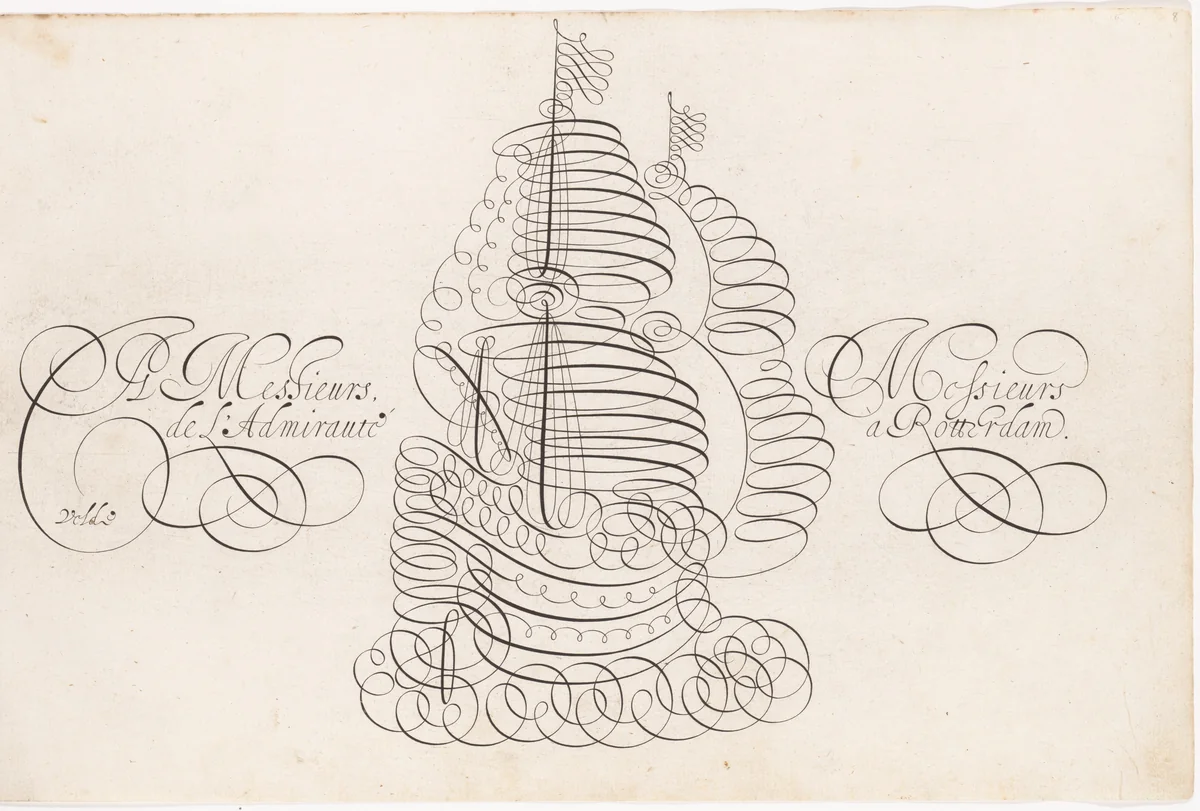 A Messieurs,
de L'Admirauté
Velde
Messieurs
a Rotterdam.
8